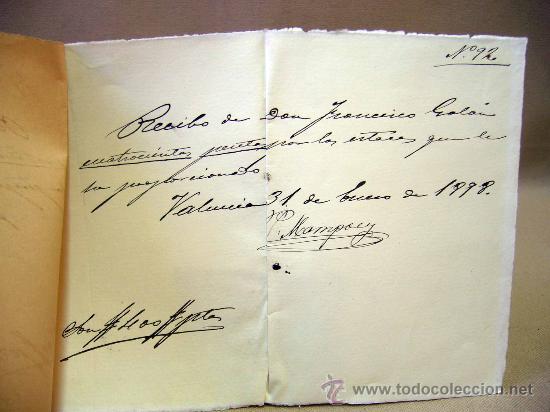 Nº 92
Recibo de Don Francisco Galán
cuatrocientas pesetas por los estores que le
ha proporcionado
Valencia 31 de Enero de 1892.
Son # 400 # ptas
todocoleccion
www.todocoleccion.net